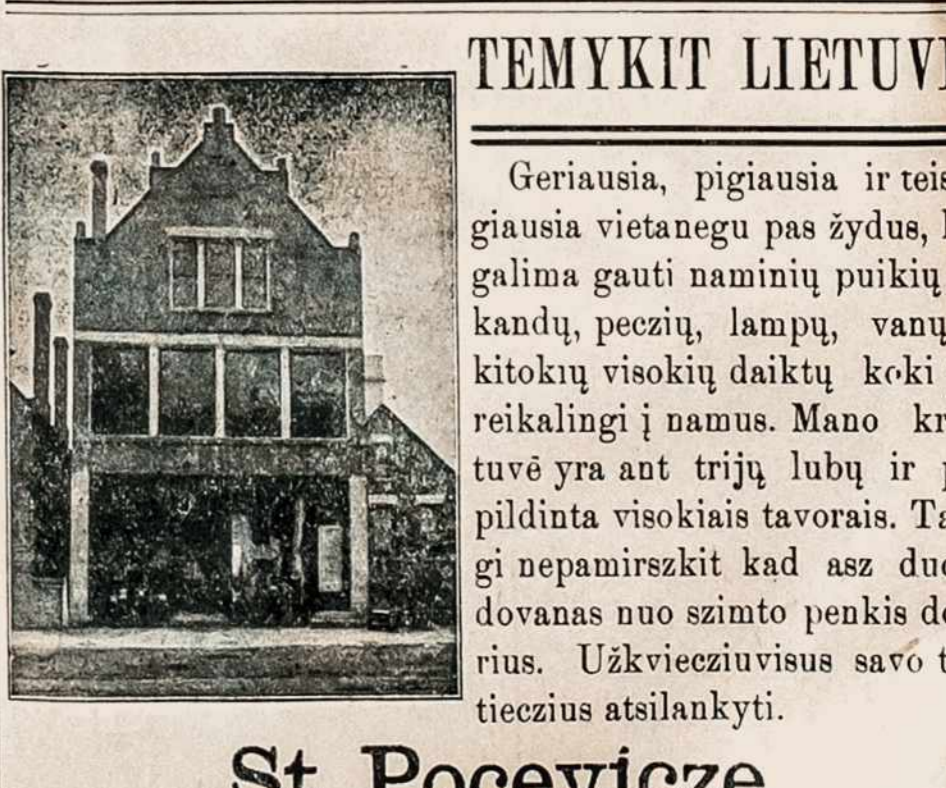 TEMYKIT LIETUVI
Geriausia, pigiausia ir teis
giausia vietanegu pas žydus,
galima gauti naminių puikių
kandų, peczių, lampų, vanų
kitokių visokių daiktų koki
reikalingi į namus. Mano kr
tuvē yra ant trijų lubų ir p
pildinta visokiais tavorais. Ta
gi nepamirszkit kad asz duo
dovanas nuo szimto penkis do
rius. Užkviecziuvisus savo t
tieczius atsilankyti.
St. Pocevicze